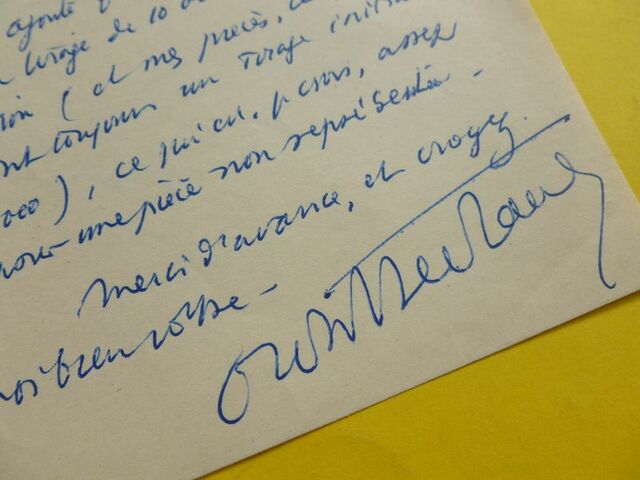 ajouté
tirage de 10
(et mes pièces, ce
toujours un tirage initial
000), ce qui est, je crois, assez
pour une pièce non représentée -
Merci d'avance, et croyez
moi bien vôtre -